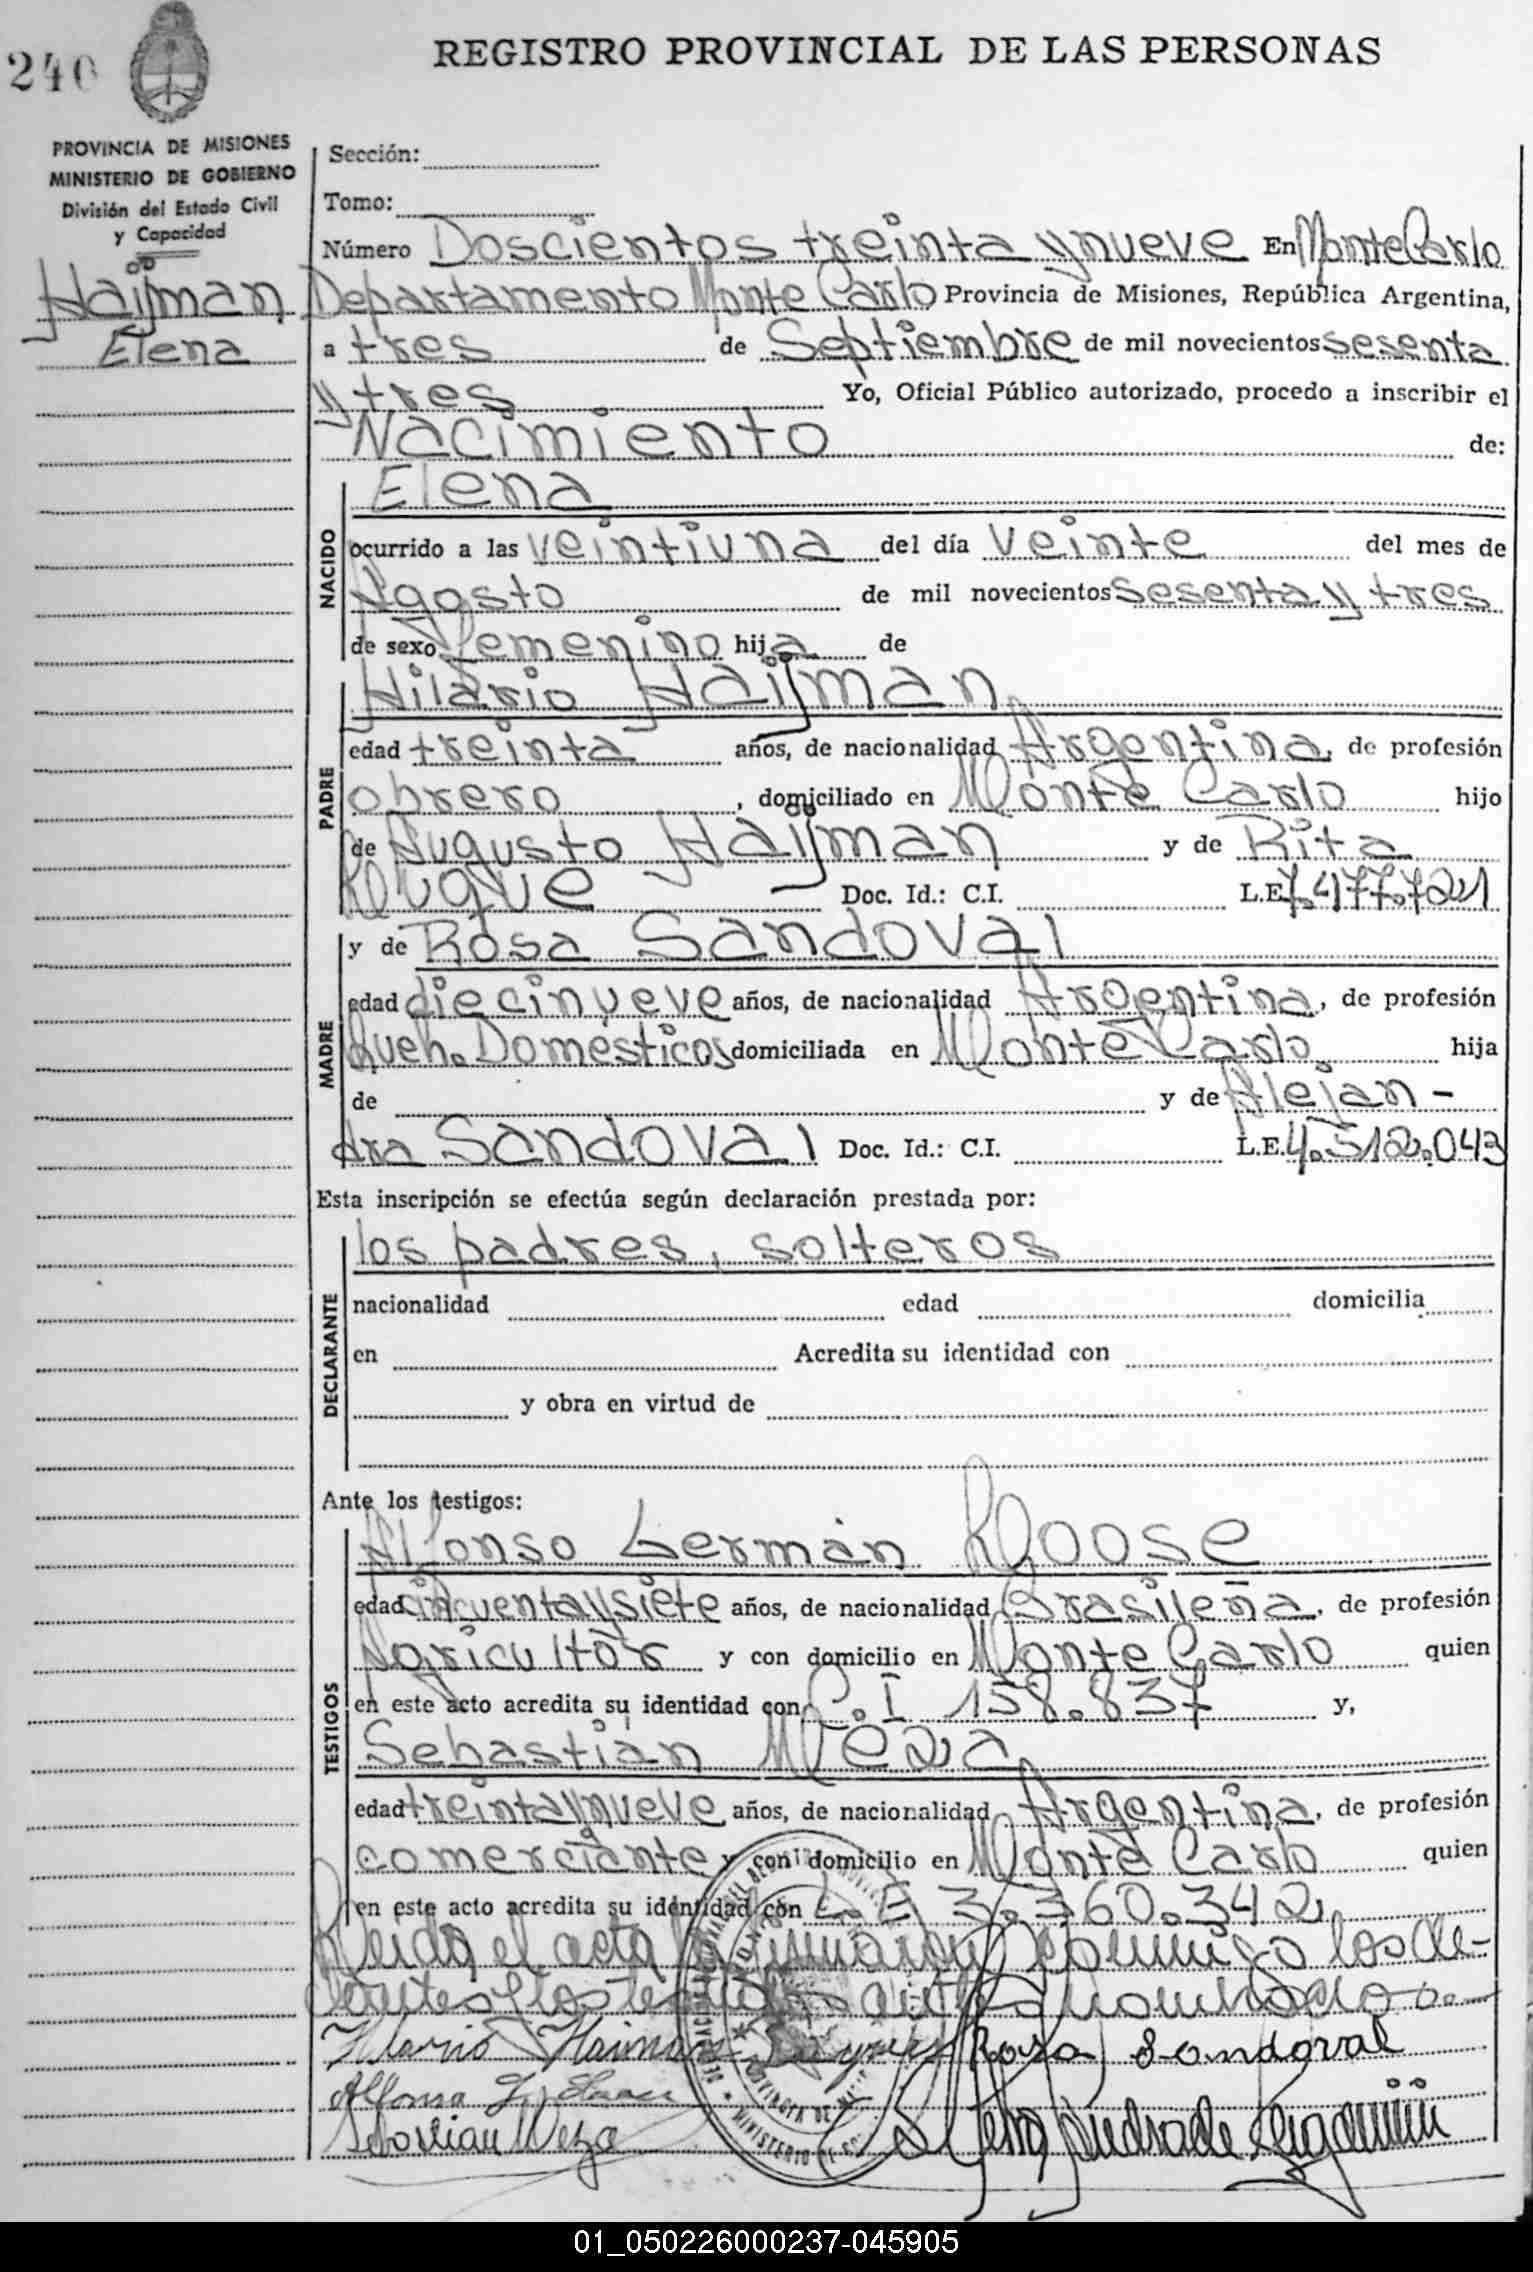 240
REGISTRO PROVINCIAL DE LAS PERSONAS
PROVINCIA DE MISIONES
MINISTERIO DE GOBIERNO
División del Estado Civil
y Capacidad
Haijman
Elena
Sección:
Tomo:
Número Doscientos treinta y nueve En Monte Carlo
Departamento Monte Carlo Provincia de Misiones, República Argentina,
a tres de Septiembre de mil novecientos sesenta
y tres Yo, Oficial Público autorizado, procedo a inscribir el
Nacimiento de:
NACIDO
Elena
ocurrido a las veintiuna del día veinte del mes de
Agosto de mil novecientos sesenta y tres
de sexo femenino hija de
PADRE
Hilario Haijman
edad treinta años, de nacionalidad Argentina, de profesión
obrero, domiciliado en Monte Carlo hijo
de Augusto Haijman y de Rita
Kluque Doc. Id.: C.I. L.E. 7.477.721
MADRE
y de Rosa Sandoval
edad diecinueve años, de nacionalidad Argentina, de profesión
Queh. Domésticos domiciliada en Monte Carlo hija
de y de Alejan-
dra Sandoval Doc. Id.: C.I. L.E. 4.512.043
Esta inscripción se efectúa según declaración prestada por:
DECLARANTE
los padres, solteros
nacionalidad edad domicilia
en Acredita su identidad con
y obra en virtud de
Ante los testigos:
TESTIGOS
Alfonso Germán Kloose
edad cincuenta y siete años, de nacionalidad Brasileña, de profesión
Agricultor y con domicilio en Monte Carlo quien
en este acto acredita su identidad con C.I 158.837 y,
Sebastián Meza
edad treinta y nueve años, de nacionalidad Argentina, de profesión
comerciante y con domicilio en Monte Carlo quien
en este acto acredita su identidad con L.E 3.360.342
Leida el acta la firmaron conmigo los de-
clarantes y los testigos antes nombrados
Hilario Haiman Rosa Sandoval
Alfonso
Sebastian Meza
01_050226000237-045905